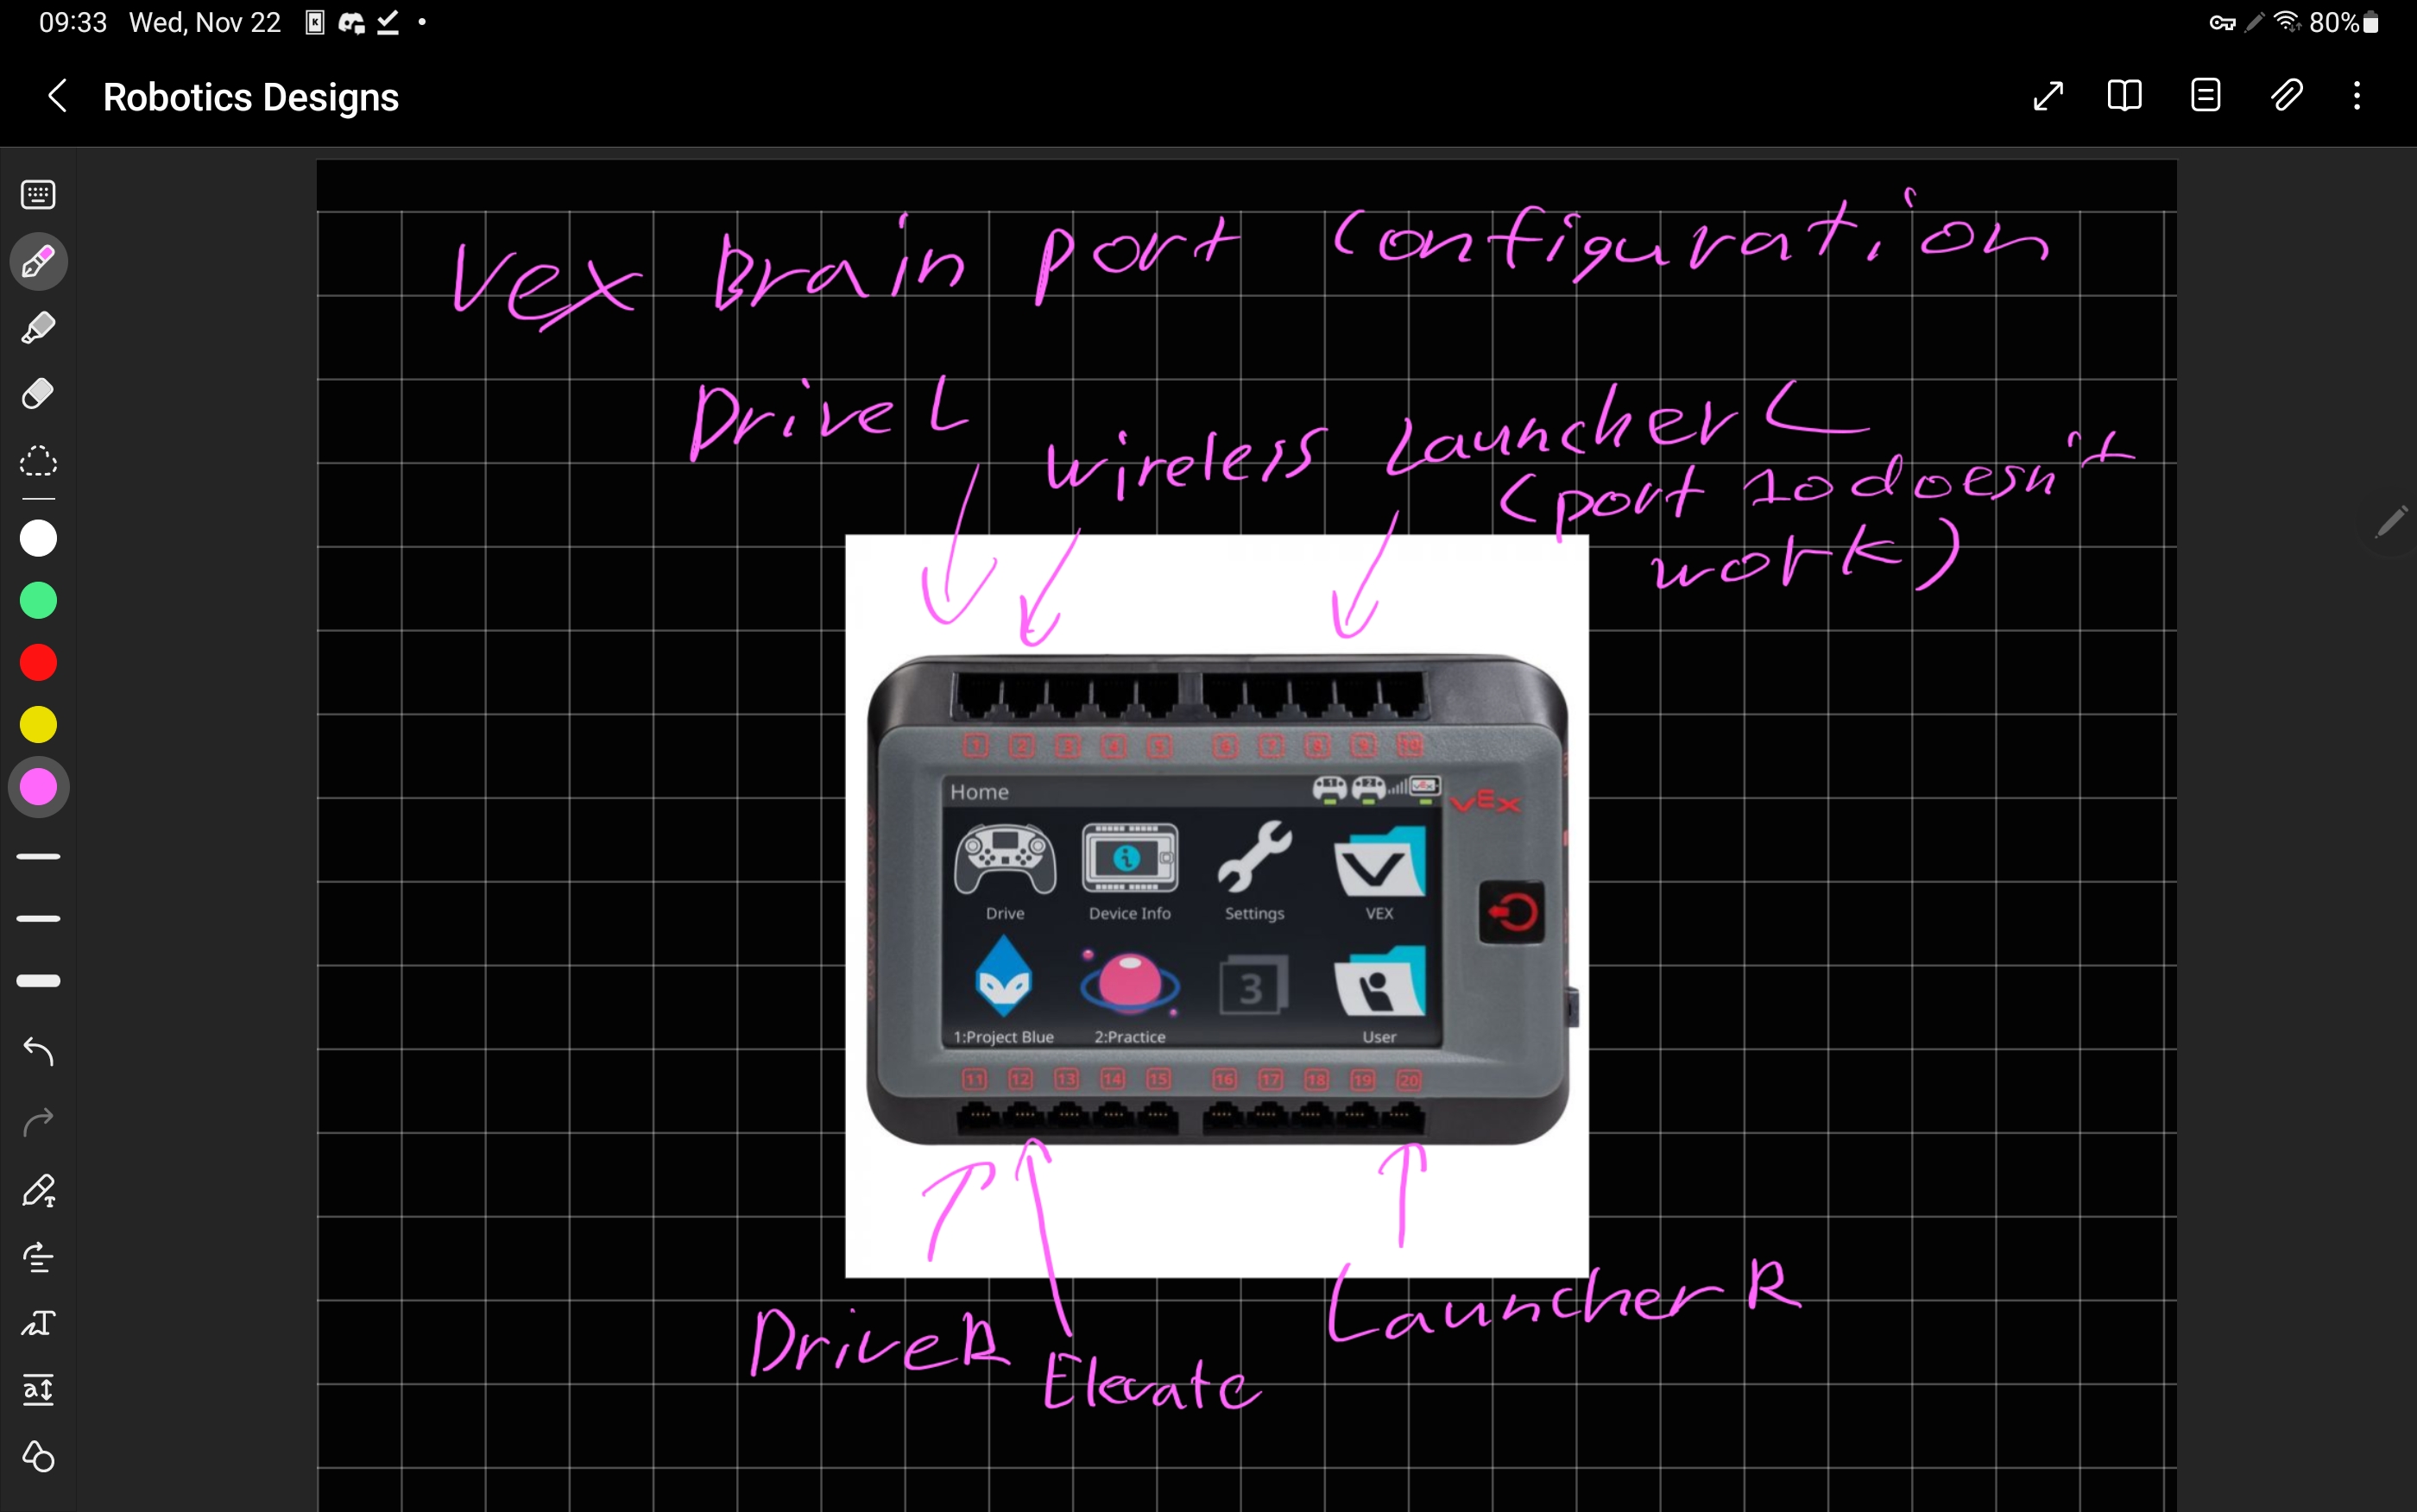 09:33 Wed, Nov 22
80%
Robotics Designs
Vex Brain port configuration
Drive L
wireless
Launcher L
(port 10 doesn't
work)
1 2 3 4 5 6 7 8 9 10
Home
1 2
VEX
Drive Device Info Settings VEX
3
1:Project Blue 2:Practice User
11 12 13 14 15 16 17 18 19 20
Drive R
Elevate
Launcher R